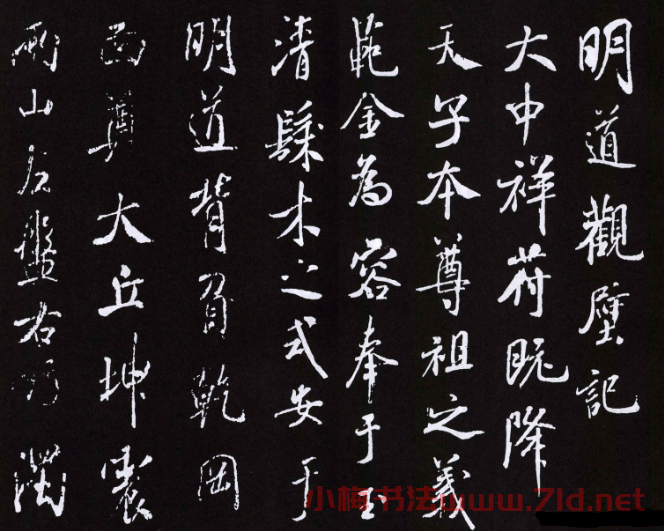 明道觀壁記
大中祥符既降
天子本尊祖之義
範金為容奉于玉
清髹木之式安于
明道背負乾岡
面大丘坤震
兩山左盤右澗
小梅书法www.7ld.net